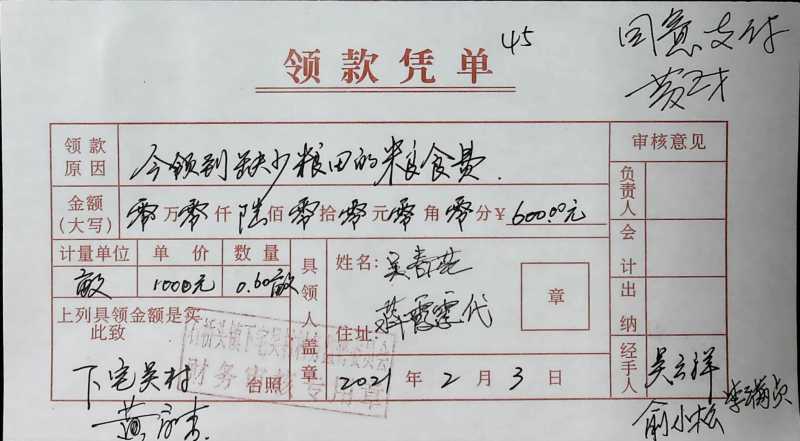 45
同意支付
领款凭单
领款原因 今领到缺少粮田的粮食费.
审核意见
金额(大写) 零万零仟陆佰零拾零元零角零分¥600.00元
负责人
计量单位 单价 数量
亩 1000元 0.60亩
具领人盖章
姓名:吴青芝
代
住址:
章
会计
出纳
上列具领金额是实
此致
下宅吴村 台照
2021年2月3日
财务审核专用章
经手人 吴云祥
俞小松